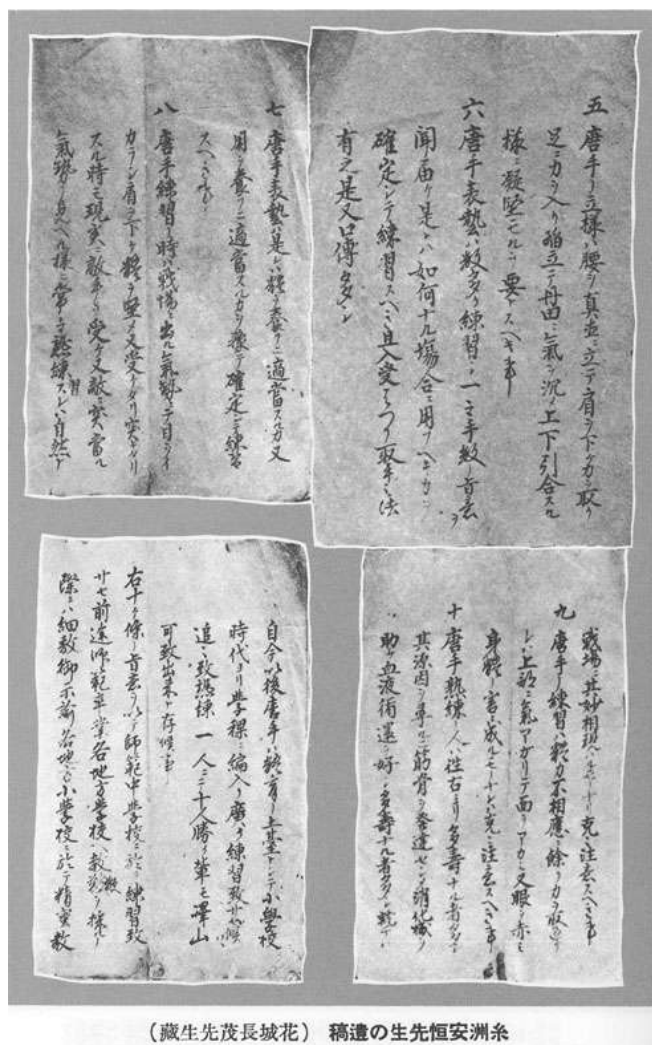 五 唐手ノ立様ハ腰ヲ真直ニ立テ肩ヲ下ケ力ヲ取リ
足ニ力ヲ入リ踏立テ丹田ニ氣ヲ沉メ上下引合スル
様ニ凝堅モルヲ要トスヘキ事
六 唐手表藝ハ数多ク練習シ一々手数ノ旨意ヲ
聞届ケ是レハ如何ナル場合ニ用フヘキカヲ
確定シテ練習スヘシ且入受ハツシ取手ノ法
有之是又口傳多シ
七 唐手表藝ハ是レハ體ヲ養フニ適當スルカ又
用ヲ養フニ適當スルカヲ豫テ確定シテ練習
スヘキ事
八 唐手練習ノ時ハ戦場ニ出ル氣勢ニテ目ヲイ
カラシ肩ヲ下ケ體ヲ堅メ又受ケタリ突タリ
スル時モ現実ニ敵手ヲ受ケ又敵ニ突當ル
氣勢ヲ見ヘル様ニ常々練習スレハ自然ト
戦場ニ其妙相現ハルモノナリ克々注意スヘキ事
九 唐手ノ練習ハ體力不相應ニ餘リ力ヲ取過キ
レハ上部ニ氣アガリテ面ヲアカミ又眼ヲ赤ミ
身體ノ害ニ成ルモノナレハ克々注意スヘキ事
十 唐手熟練ノ人ハ往古ヨリ多壽ナル者多シ
其源因ヲ尋ルニ筋骨ヲ發達セシメ消化機ヲ
助ケ血液循還ヲ好クシ多壽ナル者多シ就テハ
自今以後唐手ハ體育ノ土臺トシテ小學校
時代ヨリ學課ニ編入リ廣ク練習致サセ候ハヽ
追々致熟練一人ニテ十人勝ノ輩モ澤山
可致出来ト存候事
右十ヶ條ノ旨意ヲ以テ師範中學校ニ於テ練習致
サセ前途師範ヲ卒業各地方學校ヘ教鞭ヲ採ルノ
際ニハ細敷御示諭各地方小學校ニ於テ精実教
糸洲安恒先生の遺稿 (花城長茂先生藏)